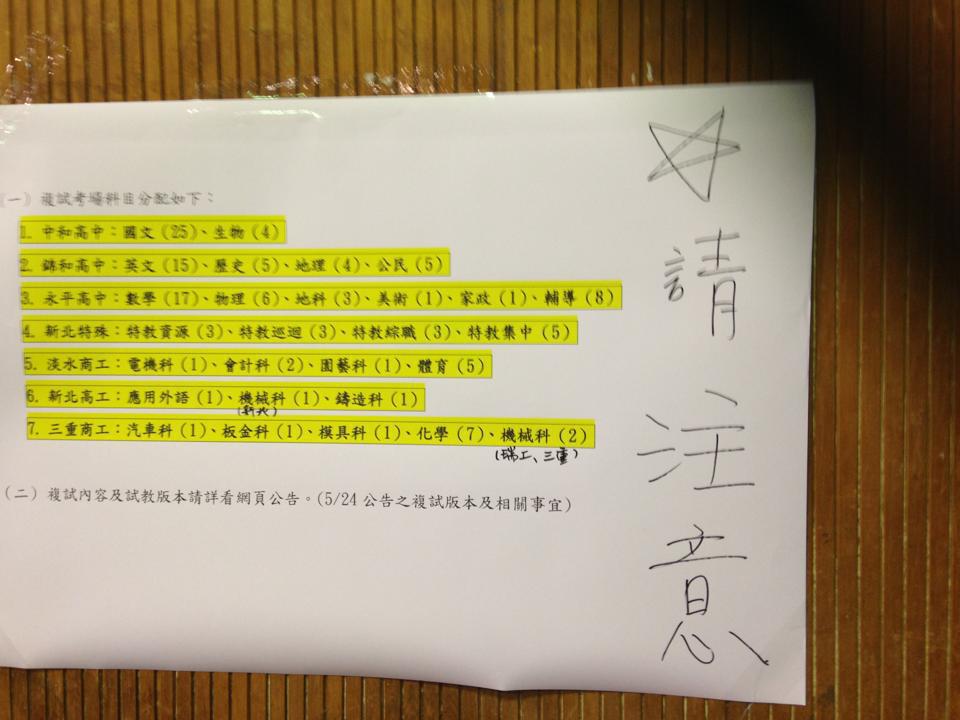 (一) 複試考場科目分配如下：
1. 中和高中：國文(25)、生物(4)
2. 錦和高中：英文(15)、歷史(5)、地理(4)、公民(5)
3. 永平高中：數學(17)、物理(6)、地科(3)、美術(1)、家政(1)、輔導(8)
4. 新北特殊：特教資源(3)、特教巡迴(3)、特教綜職(3)、特教集中(5)
5. 淡水商工：電機科(1)、會計科(2)、園藝科(1)、體育(5)
6. 新北高工：應用外語(1)、機械科(1)、鑄造科(1)
(新北)
7. 三重商工：汽車科(1)、板金科(1)、模具科(1)、化學(7)、機械科(2)
(瑞工、三重)
(二) 複試內容及試教版本請詳看網頁公告。(5/24 公告之複試版本及相關事宜)
請注意